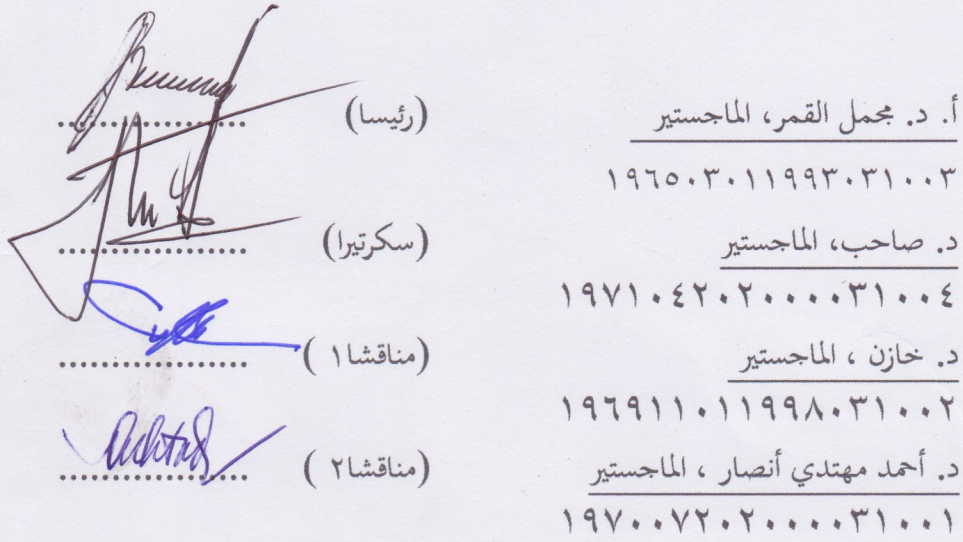 أ. د. مجمل القمر، الماجستير (رئيسا) ..................
١٩٦٥٠٣٠١١٩٩٣٠٣١٠٠٣
د. صاحب، الماجستير (سكرتيرا) ..................
١٩٧١٠٤٢٠٢٠٠٠٠٣١٠٠٤
د. خازن ، الماجستير (مناقشا١ ) ..................
١٩٦٩١١٠١١٩٩٨٠٣١٠٠٢
د. أحمد مهتدي أنصار ، الماجستير (مناقشا٢ ) ..................
١٩٧٠٠٧٢٠٢٠٠٠٠٣١٠٠١